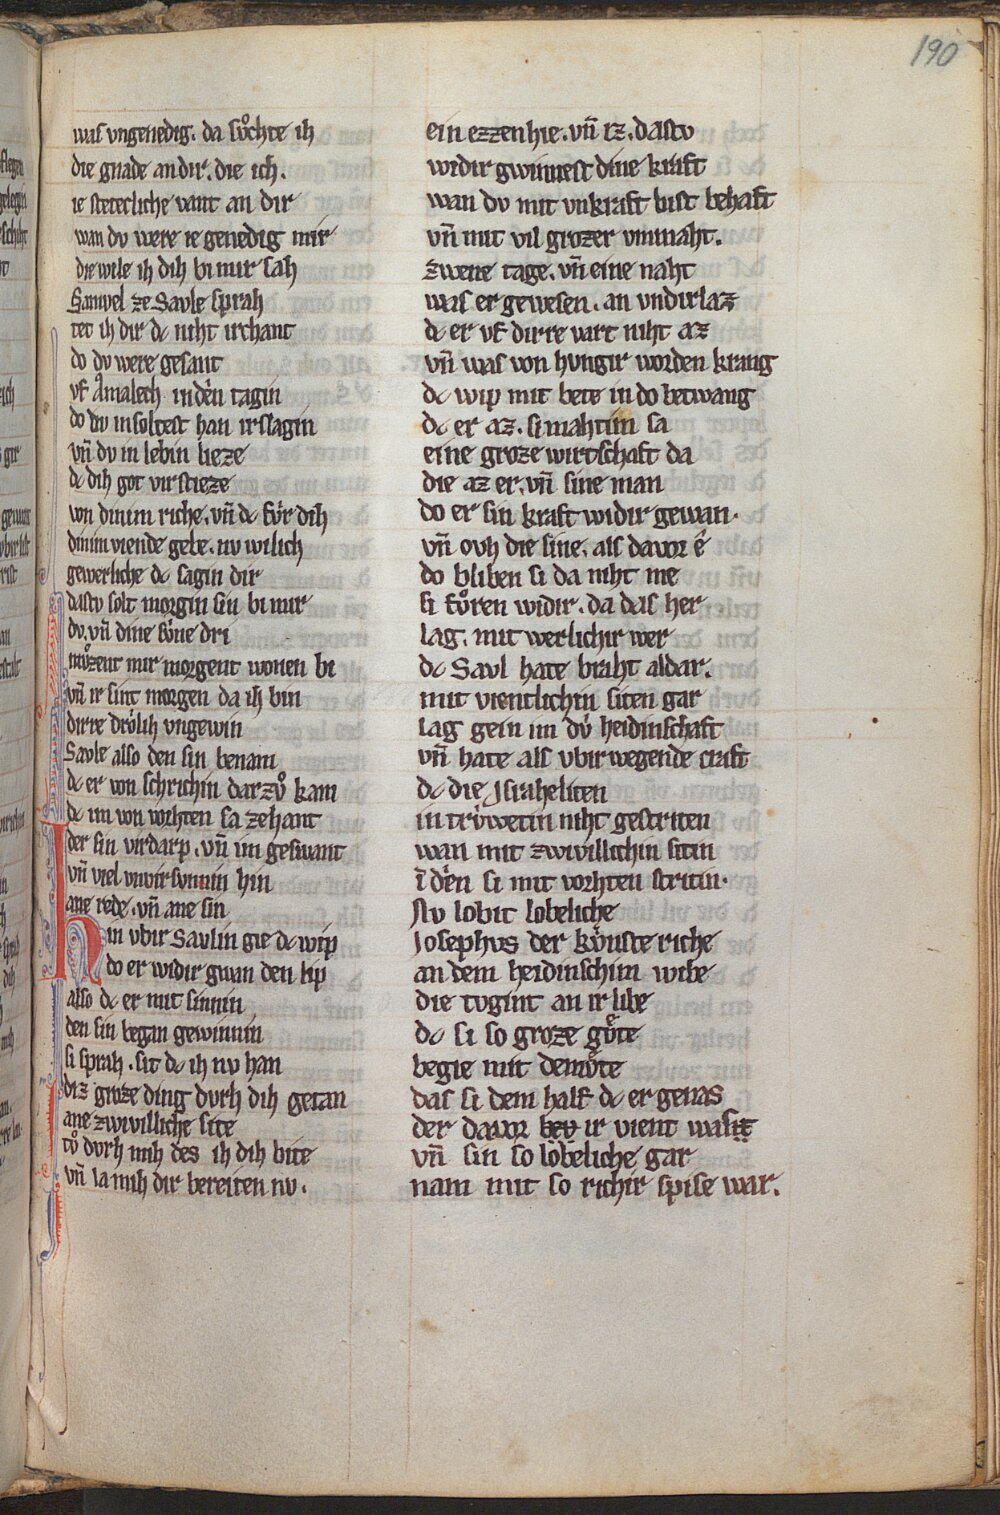 190
was vngenedig. da sůchte ih
die gnade an dir. die ich.
ie stetecliche vant an dir
wan dv were ie genedig mir
die wile ih dih bi mir sah
Samvel ze Savle sprah
tet ih dir dc niht irchant
do dv were gesant
vf Amalech in den tagin
do dv in soltest han irslagin
vn̄ dv in lebin lieze
dc dih got virstieze
von dinim riche. vn̄ dc fůr dih
dinim viende gebe. nv wil ich
gewerliche dc sagin dir
dastv solt morgin sin bi mir
dv. vn̄ dine sv́ne dri
mv̊zent mir morgent wonen bi
vn̄ ir sint morgen da ih bin
dirre drőlih vngewin
Savle also den sin benam
dc er von schrichin darzv̊ kam
dc im von vorhten sa zehant
der sin virdarp. vn̄ im geswant
vn̄ viel vnvirsvnnin hin
ane rede. vn̄ ane sin
Hin vbir Savlin gie dc wip
do er widir gwan den lip
also dc er mit sinnin
den sin began gewinnin
si sprah. sit dc ih nv han
diz groze ding dvrh dih getan
ane zwivilliche site
tv̊ dvrh mih des ih dih bite
vn̄ la mih dir bereiten nv.
ein ezzen hie. vn̄ iz. dastv
widir gwinnest dine kraft
wan dv mit vnkraft bist behaft
vn̄ mit vil grozer vnmaht.
zwene tage. vn̄ eine naht
was er gewesen. an vndirlaz
dc er vf dirre vart niht az
vn̄ was von hvngir worden krang
dc wip mit bete in do betwang
dc er az. si mahtim sa
eine groze wirtschaft da
die az er. vn̄ sine man
do er sin kraft widir gewan.
vn̄ ovh die sine. als davor é
do bliben si da niht me
si fv̊ren widir. da das her
lag. mit werlichir wer
dc Savl hate braht aldar.
mit vientlichin siten gar
lag gein im dv́ heidinschaft
vn̄ hate als vbir wegende craft
dc die Jsraheliten
in trv́wetin niht gestriten
wan mit zwivillichin sitin
ī den si mit vorhten stritin.
Nv lobit lobeliche
Josephvs der kv́nste riche
an dem heidinschim wibe
die tvgint an ir libe
dc si so groze gv̊te
begie mit demv̊te
das si dem half dc er genas
der davor bev ir vient wasit
vn̄ sin so lobeliche gar
nam mit so richir spise war.